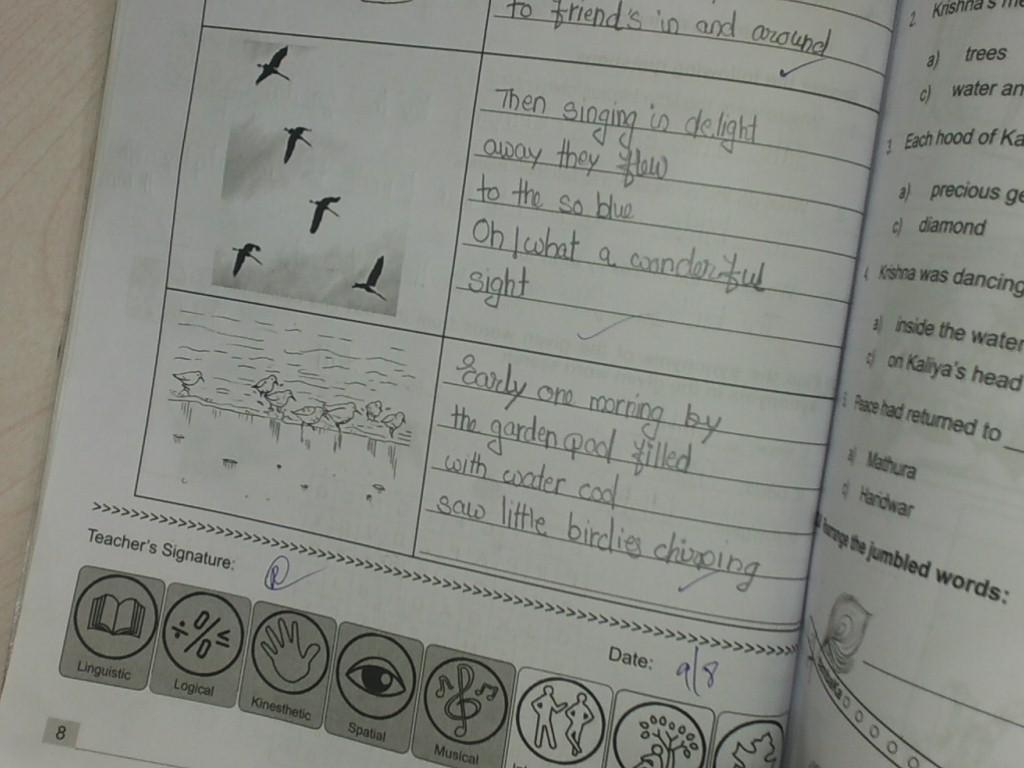 to friend's in and around
Then singing in delight
away they flew
to the so blue
Oh! what a wonderful
sight
Early one morring by
the garden pool filled
with water cool
saw little birdies chirping
Teacher's Signature:
Date: 9/8
Linguistic
Logical
Kinesthetic
Spatial
Musical
8
2. Krishna's
a) trees
c) water
3. Each hood of
a) precious
c) diamond
4. Krishna was dancing
a) inside the water
c) on Kaliya's head
5. Peace had returned to
a) Mathura
c) Haridwar
the jumbled words: